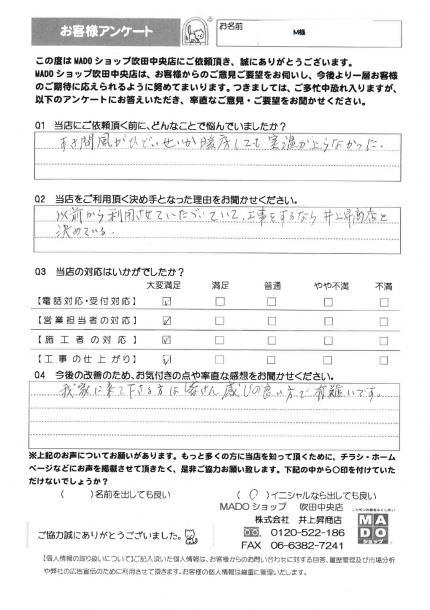 お客様アンケート
お名前
M様
この度は MADO ショップ吹田中央店にご依頼頂き、誠にありがとうございます。
MADO ショップ吹田中央店は、お客様からのご意見ご要望をお伺いし、今後より一層お客様
のご期待に応えられるように努めてまいります。つきましては、ご多忙中恐れ入りますが、
以下のアンケートにお答えいただき、率直なご意見・ご要望をお聞かせください。
Q1 当店にご依頼頂く前に、どんなことで悩んでいましたか？
すき間風がひどいせいか暖房しても室温が上らなかった。
Q2 当店をご利用頂く決め手となった理由をお聞かせください。
以前から利用させていただいていて、工事をするなら井上昇商店と
決めている。
Q3 当店の対応はいかがでしたか？
大変満足 満足 普通 やや不満 不満
【電話対応・受付対応】
【営業担当者の対応】
【施工者の対応】
【工事の仕上がり】
Q4 今後の改善のため、お気付きの点や率直な感想をお聞かせください。
我家に来て下さる方は皆さん感じの良い方で有難いです。
※上記のお声についてお願いがあります。もっと多くの方に当店を知って頂くために、チラシ・ホーム
ページなどにお声を掲載させて頂きたく、是非ご協力お願い致します。下記の中から〇印を付けていた
だけないでしょうか？
（ ）名前を出しても良い （ 〇 ）イニシャルなら出しても良い
MADO ショップ 吹田中央店
株式会社 井上昇商店
0120-522-186
FAX 06-6382-7241
MADO
ショップ
ご協力誠にありがとうございました。
【個人情報の取り扱いについて】ご記入頂いた個人情報は、お客様からのお問い合わせに対する回答、履歴管理及び市場分析
や弊社の広告宣伝のために利用させて頂きます。お客様の個人情報は厳重に管理いたします。